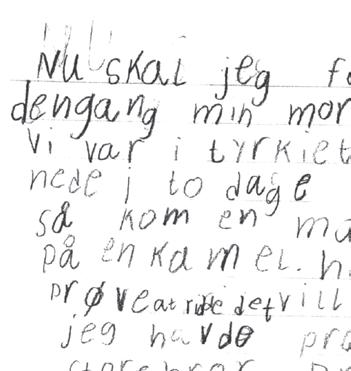 Nu skal jeg f
dengang min mor
vi var i tyrkiet
nede i to dage
så kom en ma
på en kamel. h
prøve at ride det vill
jeg havde pr
storebror